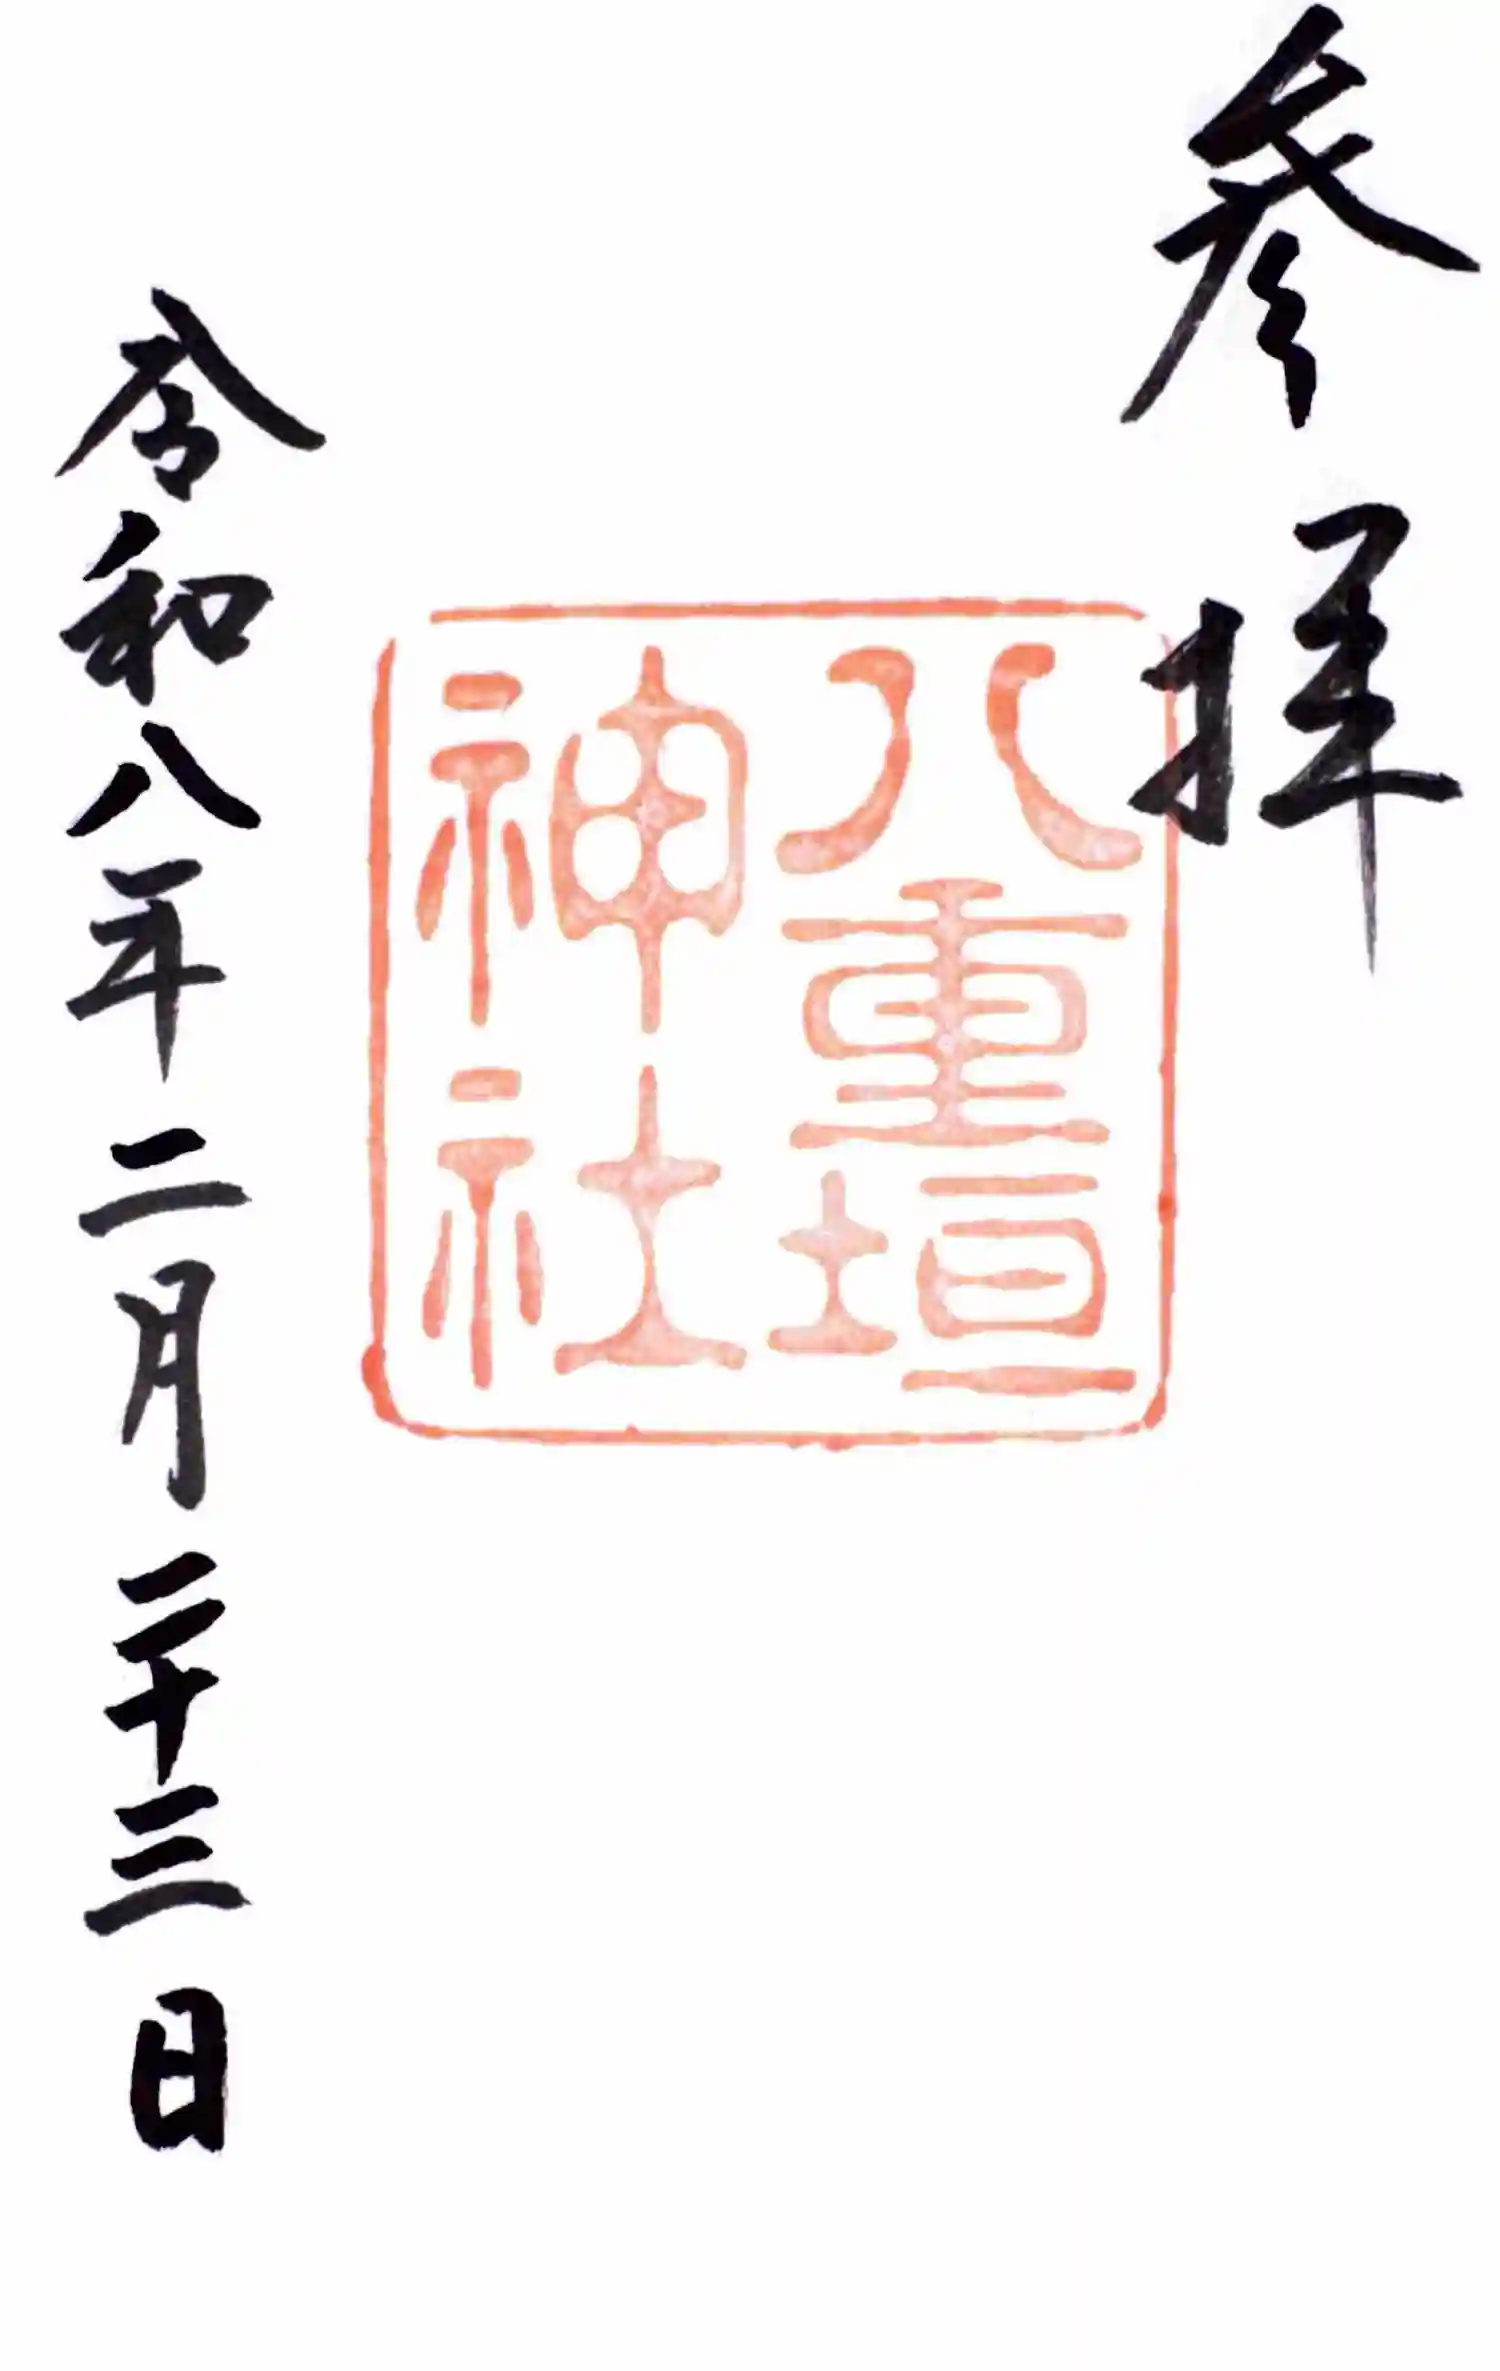 参拝
八重垣
神社
令和八年二月二十三日